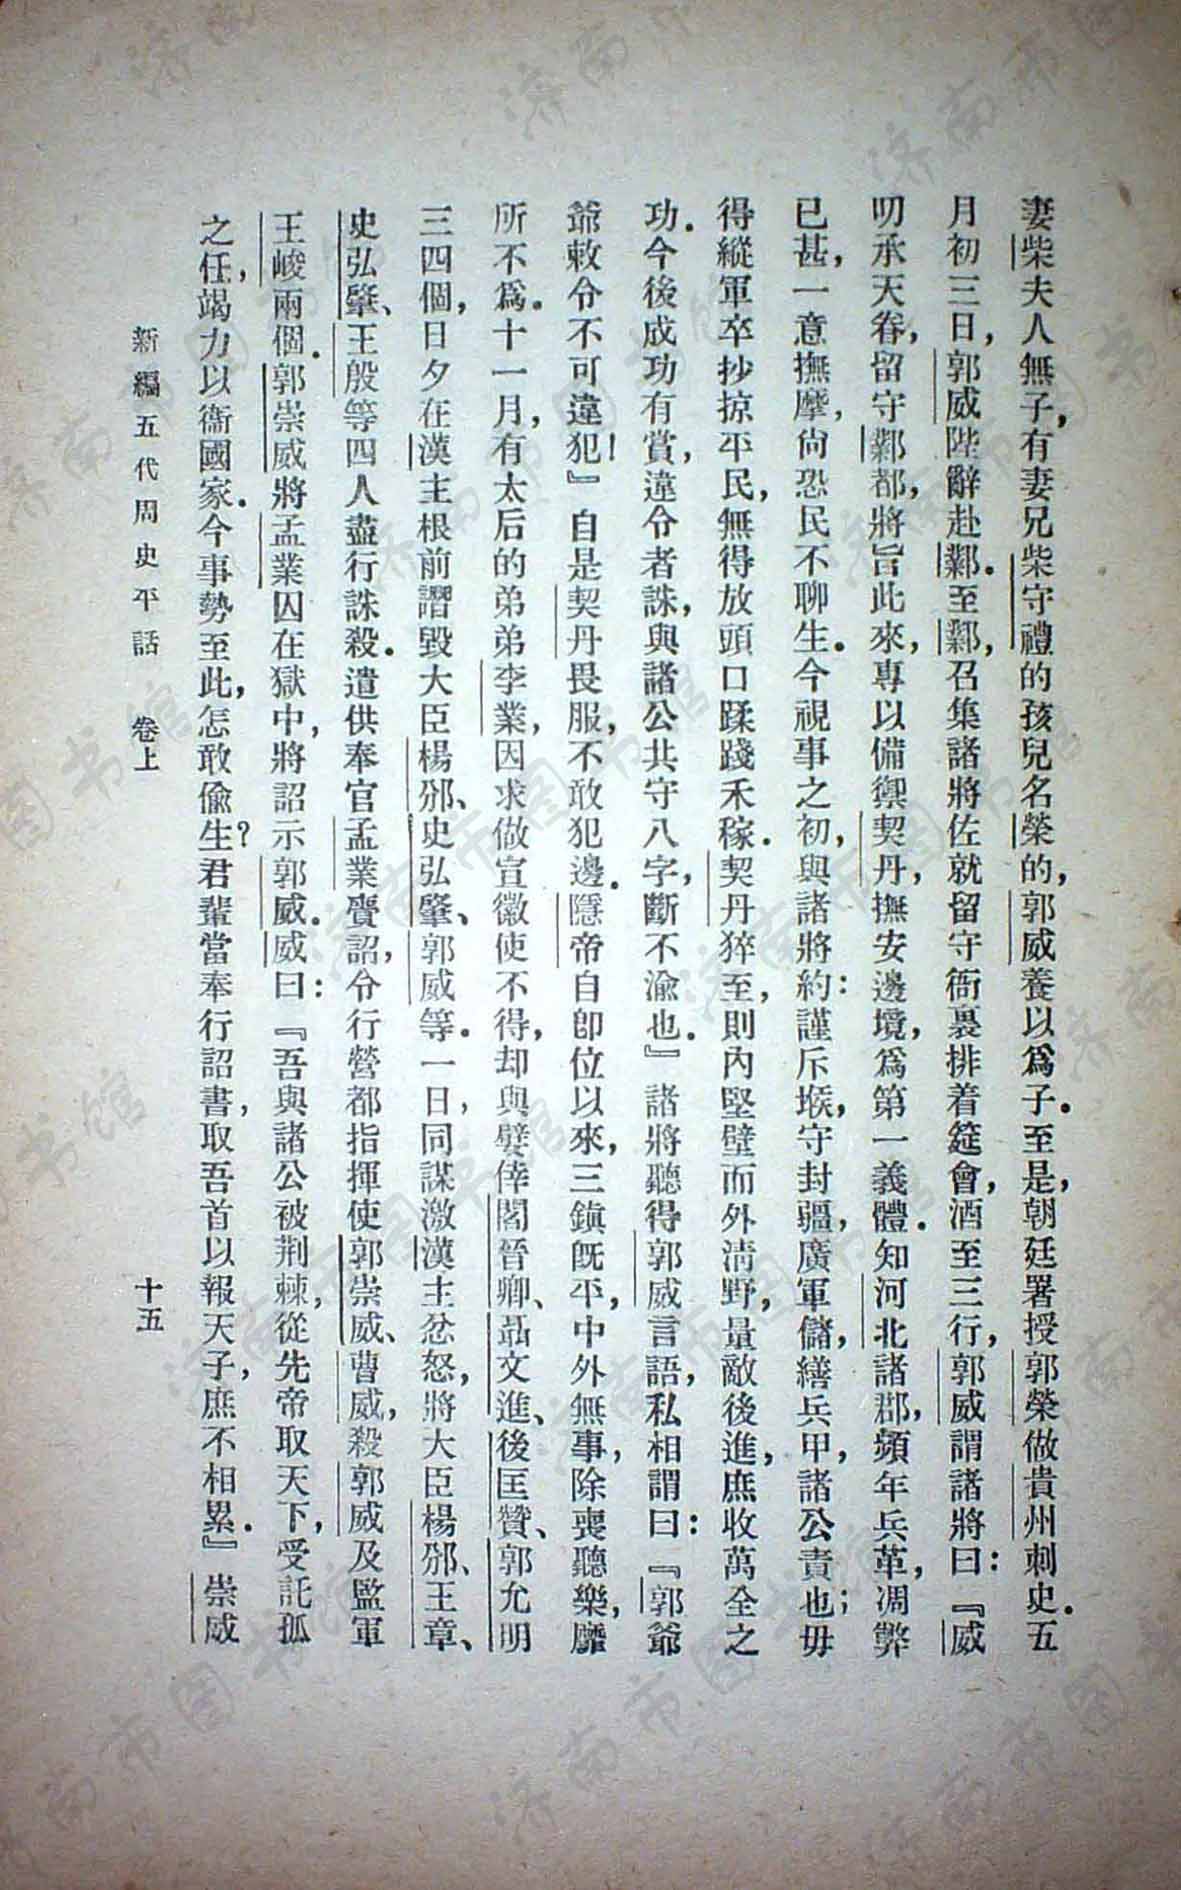 妻柴夫人無子，有妻兄柴守禮的孩兒名榮的，郭威養以爲子．至是，朝廷署授郭榮做貴州刺史．五
月初三日，郭威陛辭赴鄴．至鄴，召集諸將佐就留守衙裏排着筵會，酒至三行，郭威謂諸將曰：『威
叨承天眷，留守鄴都，將旨此來，專以備禦契丹，撫安邊境，爲第一義體．知河北諸郡，頻年兵革，凋弊
已甚，一意撫摩，尙恐民不聊生．今視事之初，與諸將約：謹斥堠，守封疆，廣軍儲，繕兵甲，諸公責也；毋
得縱軍卒抄掠平民，無得放頭口蹂踐禾稼．契丹猝至，則內堅壁而外淸野，量敵後進，庶收萬全之
功．今後成功有賞，違令者誅，與諸公共守八字，斷不渝也．』諸將聽得郭威言語，私相謂曰：『郭爺
爺敕令不可違犯！』自是契丹畏服，不敢犯邊．隱帝自卽位以來，三鎭旣平，中外無事，除喪聽樂，靡
所不爲．十一月，有太后的弟弟李業，因求做宣徽使不得，却與嬖倖閻晉卿、聶文進、後匡贊、郭允明
三四個，日夕在漢主根前譖毀大臣楊邠、史弘肇、郭威等．一日，同謀激漢主忿怒，將大臣楊邠、王章、
史弘肇、王殷等四人盡行誅殺．遣供奉官孟業賫詔，令行營都指揮使郭崇威、曹威，殺郭威及監軍
王峻兩個．郭崇威將孟業囚在獄中，將詔示郭威．威曰：『吾與諸公被荆棘，從先帝取天下，受託孤
之任，竭力以衞國家．今事勢至此，怎敢偸生？君輩當奉行詔書，取吾首以報天子，庶不相累．』崇威
新編五代周史平話　卷上　十五